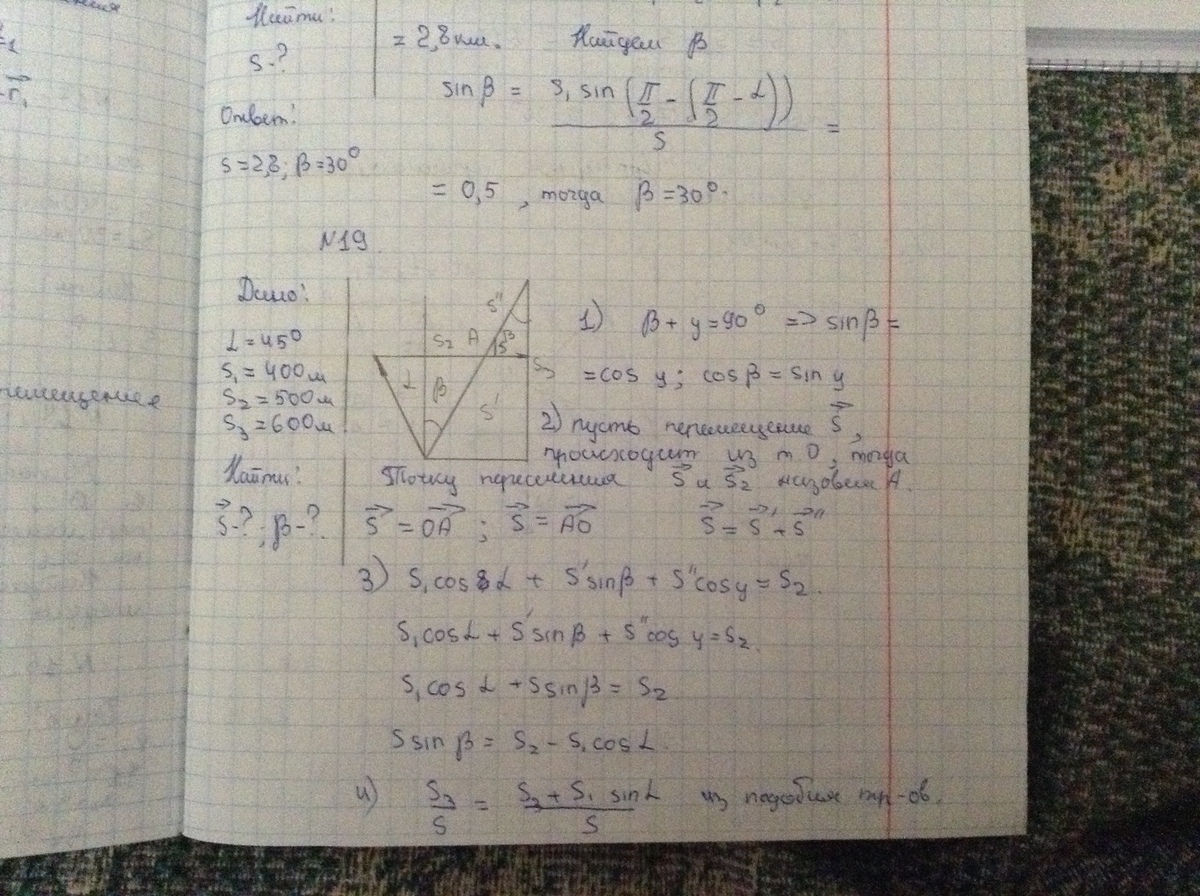 =1
-r⃗₁
перемещение
Найти:
S-?
Ответ:
S=2,8; β=30°
= 2,8км. Найдем β
sin β = S₁ sin (π/2 - (π/2 - α)) / S =
= 0,5, тогда β=30°.
N19.
Дано:
α=45°
S₁=400м
S₂=500м
S₃=600м
Найти:
S⃗-?; β-?
S₂ A S'' β S₃
α β S'
1) β + y = 90° => sin β =
= cos y; cos β = sin y
2) пусть перемещение S⃗,
происходит из т. O, тогда
Точку пересечения S⃗ и S⃗₂ назовем A.
S⃗' = OA⃗; S⃗ = AO⃗ S⃗ = S⃗' + S⃗''
3) S₁ cos α + S' sin β + S'' cos y = S₂.
S₁ cos α + S' sin β + S'' cos y = S₂.
S₁ cos α + S sin β = S₂
S sin β = S₂ - S₁ cos α.
4) S₃/S = S₃ + S₁ sin α / S из подобия тр-ов.